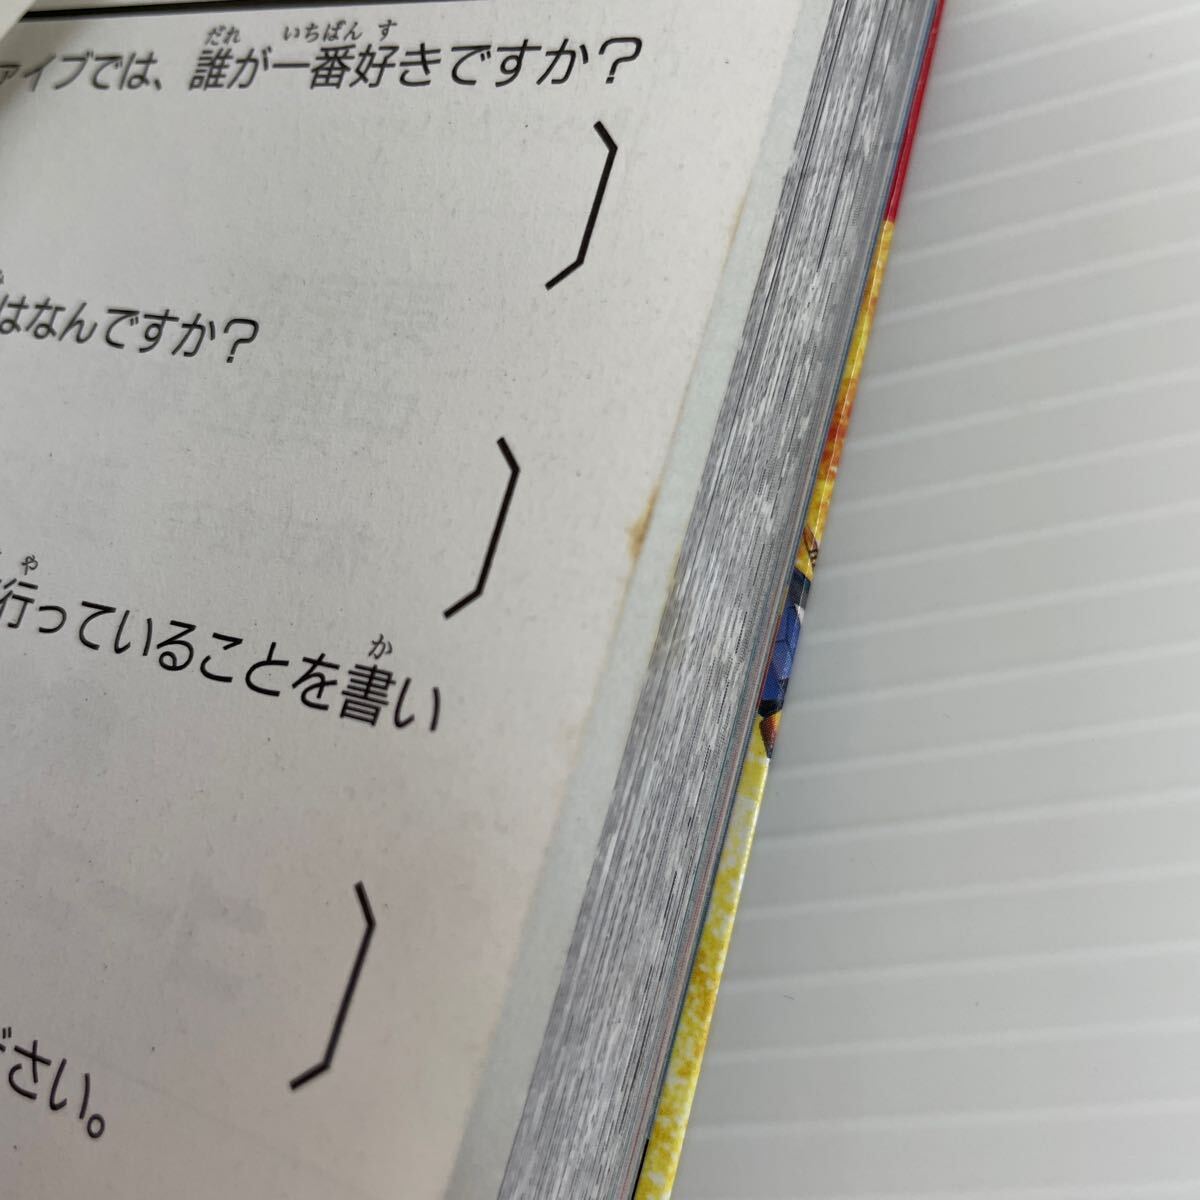 ァイブでは、誰が一番好きですか？
はなんですか？
行っていることを書い
ださい。